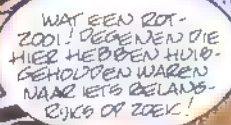 WAT EEN ROT-
ZOOI! DEGENEN DIE
HIER HEBBEN HUIS-
GEHOUDEN WAREN
NAAR IETS BELANG-
RIJKS OP ZOEK!